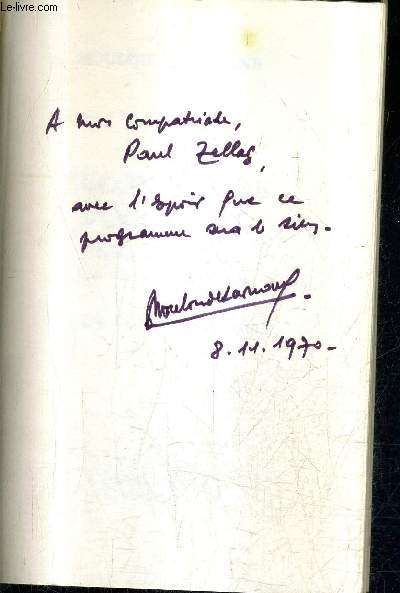 Le-livre.com
A mon compatriote,
Paul Zellag,
avec l'espoir que ce
programme sera le sien.
8.11.1970-